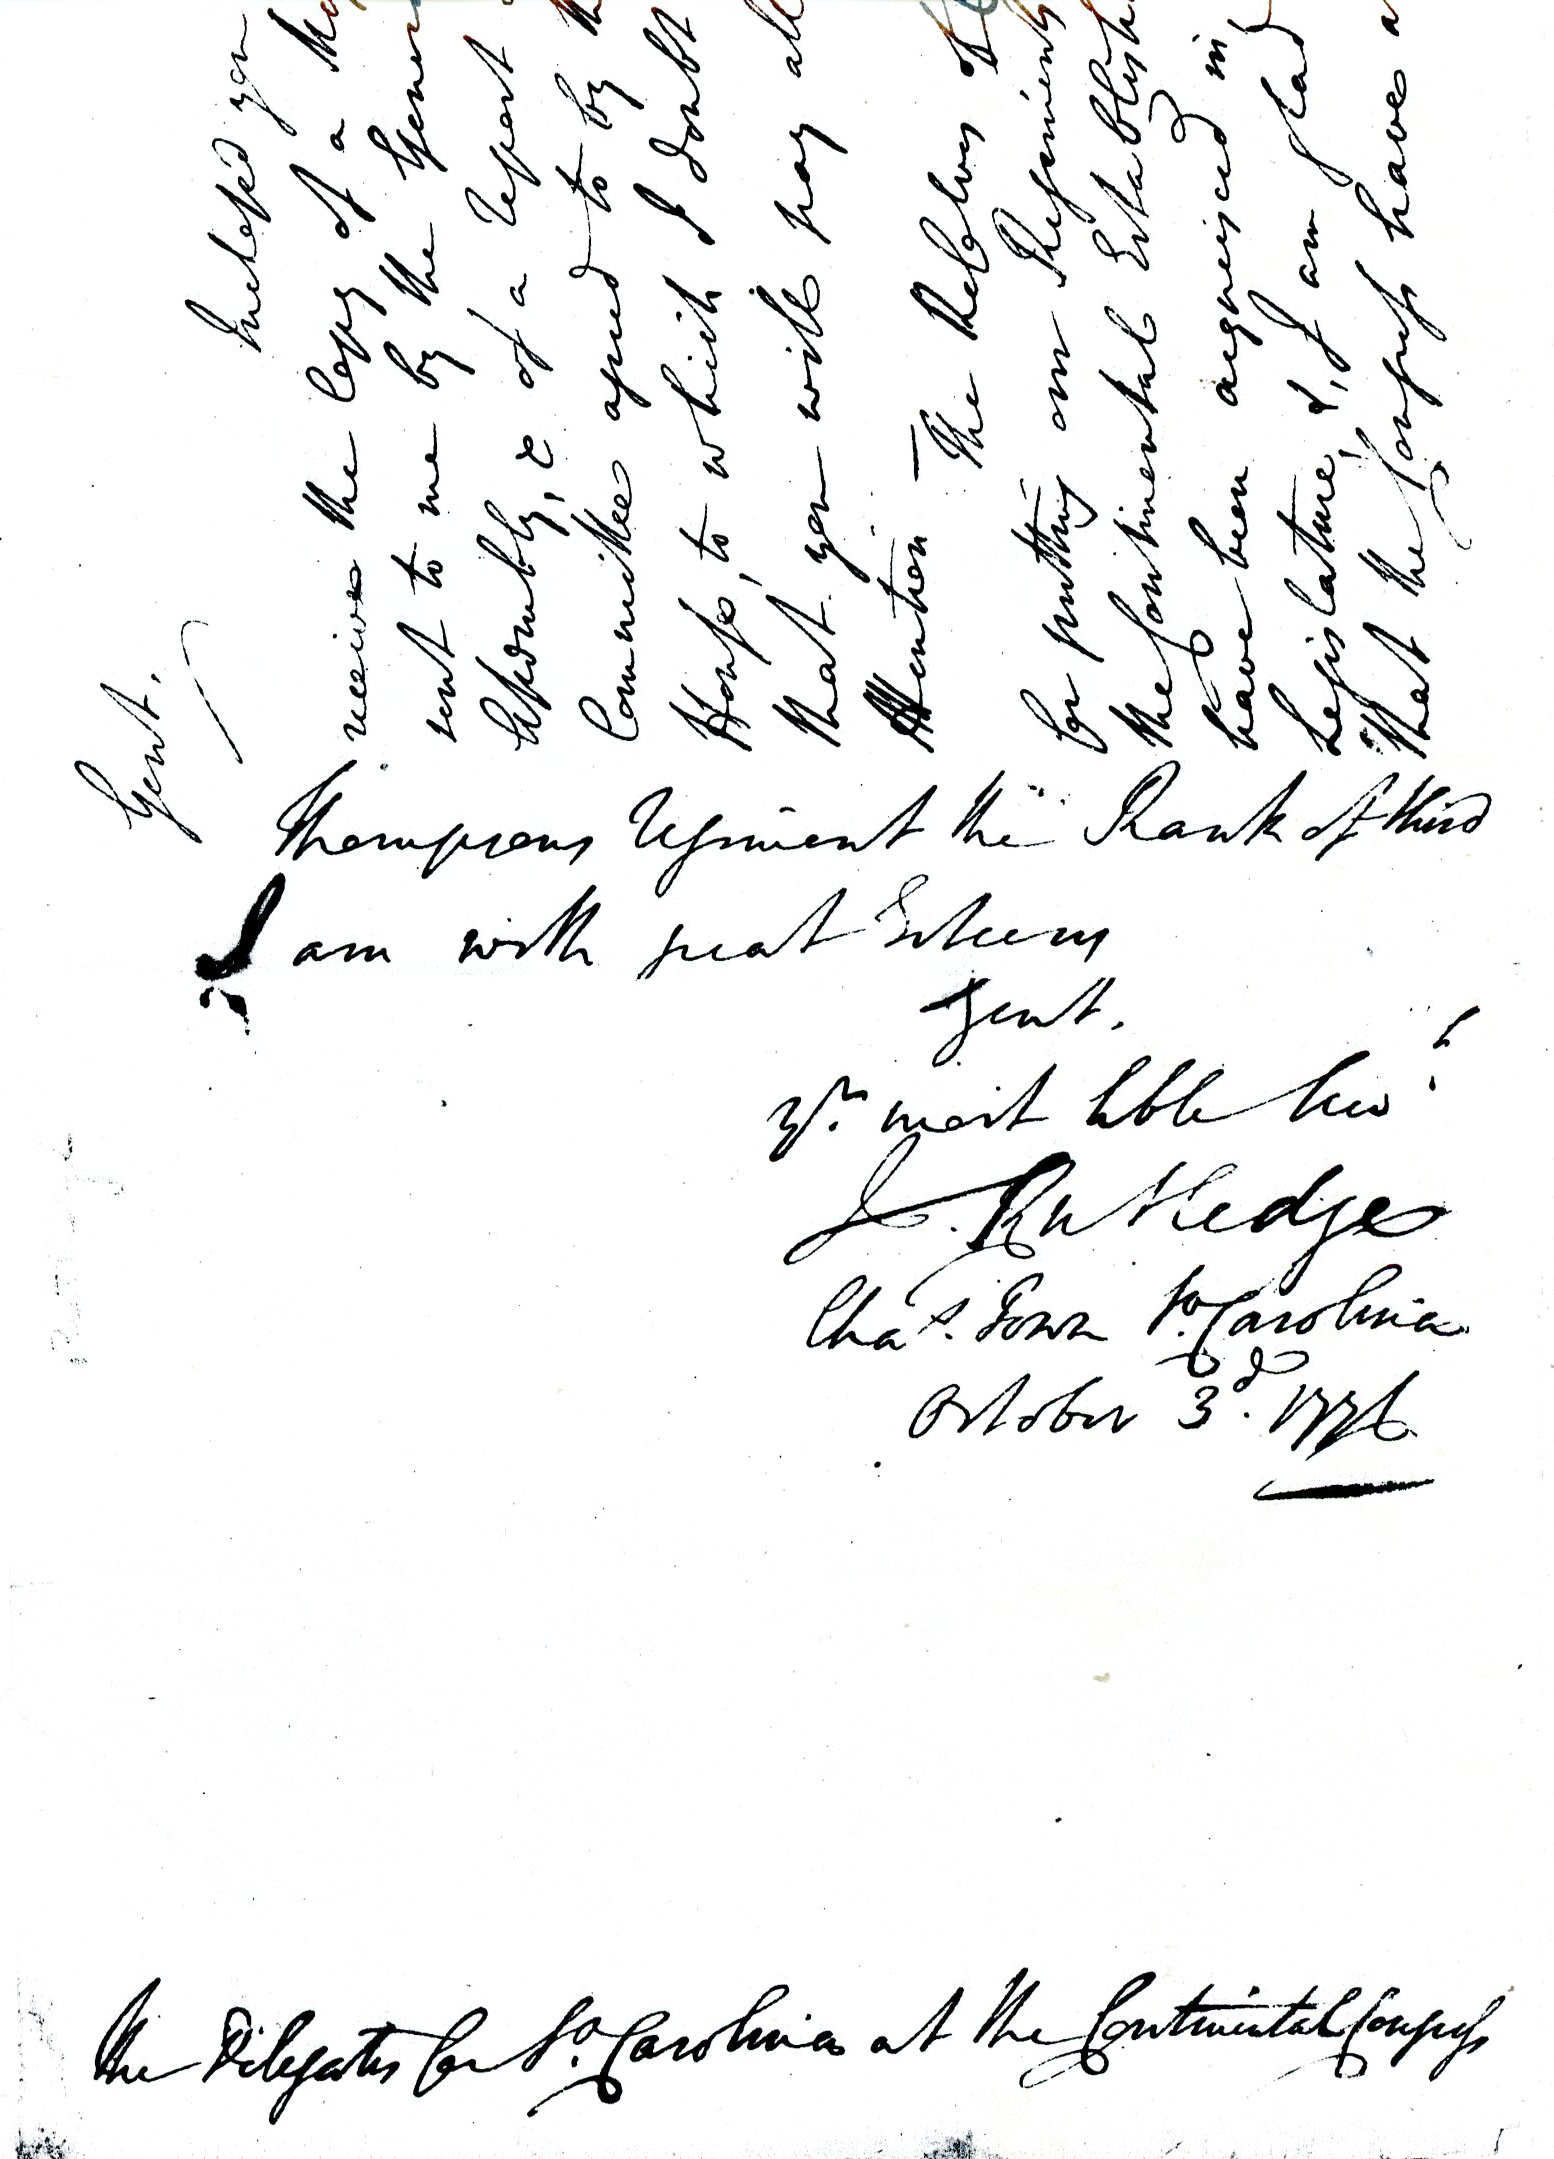 Gent.
Inclosed you
receive the Copy of a
sent to me by the
Assembly, & of a report
Committee agreed to by
House, to which I doubt
that you will pay all
Attention — The Resolves of
for putting our Regiments
the Continental
have been acquiesced in
Legislature, &, I am glad
that the Congress have
Thompsons regiment the Rank of third
I am with great Esteem
Gent.
yr. most hble
J. Rutledge
Chas. Town So. Carolina
October 3d. 1776
The Delegates for So. Carolina at the Continental Congress